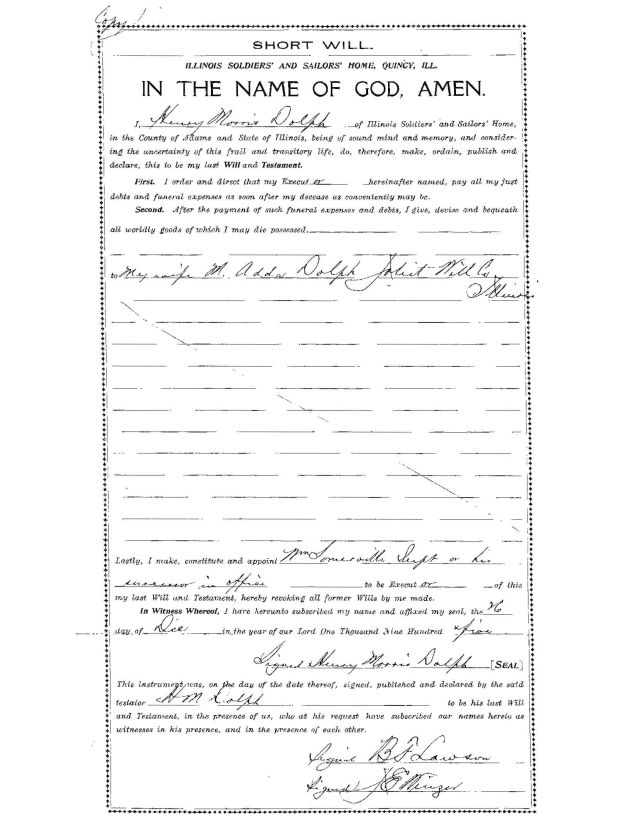 Copy
SHORT WILL.
ILLINOIS SOLDIERS' AND SAILORS' HOME, QUINCY, ILL.
IN THE NAME OF GOD, AMEN.
I, Henry Morris Dolph of Illinois Soldiers' and Sailors' Home,
in the County of Adams and State of Illinois, being of sound mind and memory, and consider-
ing the uncertainty of this frail and transitory life, do, therefore, make, ordain, publish and
declare, this to be my last Will and Testament.
First. I order and direct that my Execut or hereinafter named, pay all my just
debts and funeral expenses as soon after my decease as conveniently may be.
Second. After the payment of such funeral expenses and debts, I give, devise and bequeath
all worldly goods of which I may die possessed.
to My wife M. Adda Dolph Joliet Will Co
Illinois
Lastly, I make, constitute and appoint Wm Somerville Supt or his
successor in office to be Execut or of this
my last Will and Testament, hereby revoking all former Wills by me made.
In Witness Whereof, I have hereunto subscribed my name and affixed my seal, the
day of Dec in the year of our Lord One Thousand Nine Hundred five
Signed Henry Morris Dolph [SEAL]
This instrument was, on the day of the date thereof, signed, published and declared by the said
testator H M Dolph to be his last Will
and Testament, in the presence of us, who at his request have subscribed our names hereto as
witnesses in his presence, and in the presence of each other.
Signed B F Lawson
Signed J E